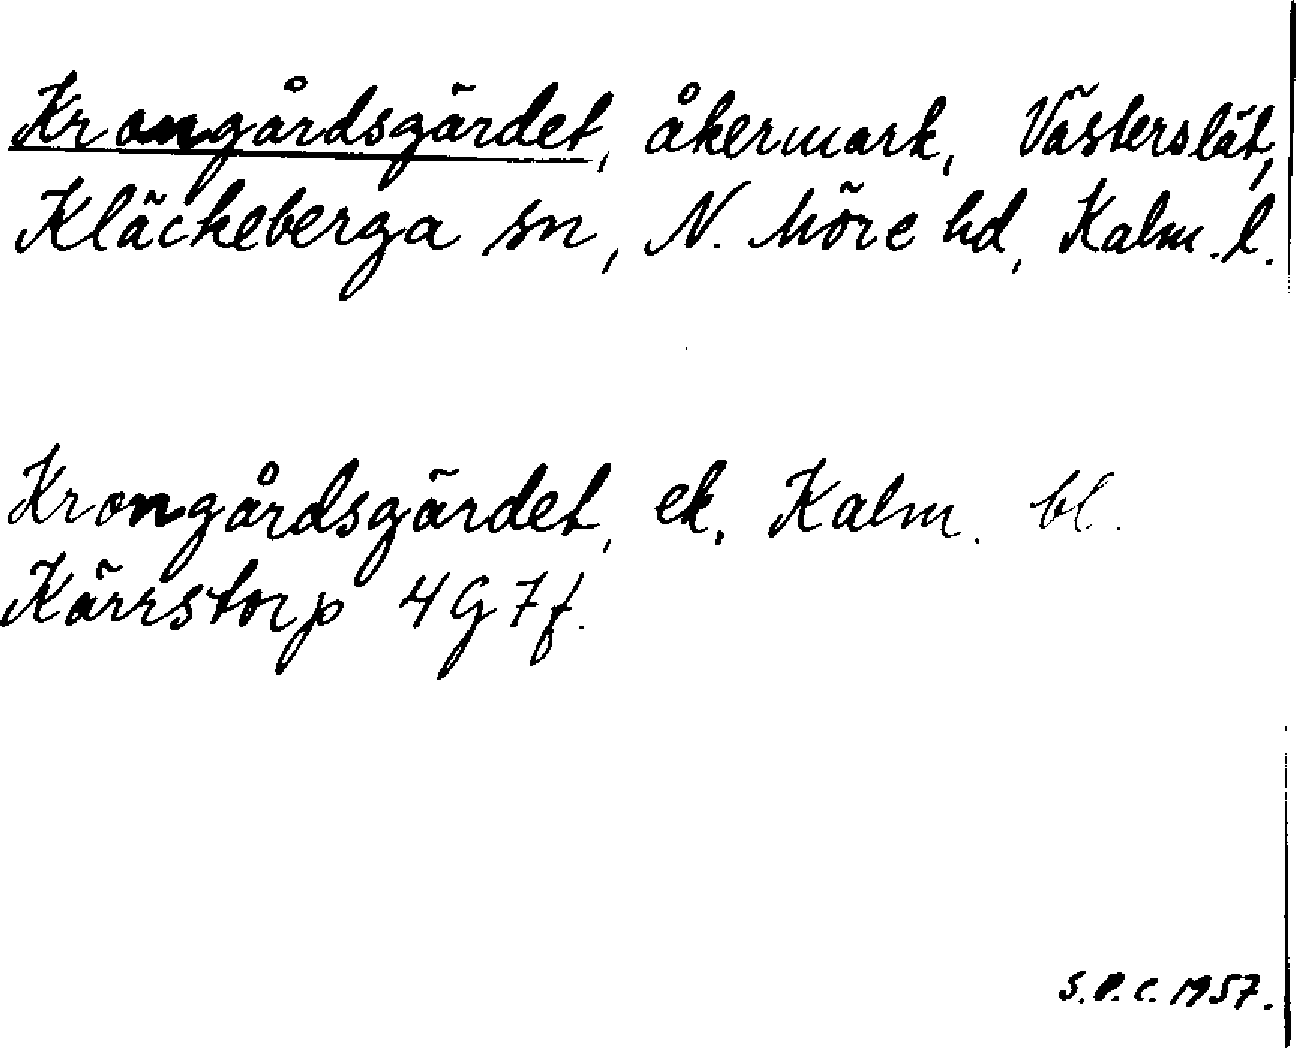 Krongårdsgärdet, åkermark, Västerslät,
Kläckeberga sn, N. Möre hd, Kalm. l.
Krongårdsgärdet, ek. Kalm. bl.
Kärrstorp 4G7f.
S.P.C. 1957.